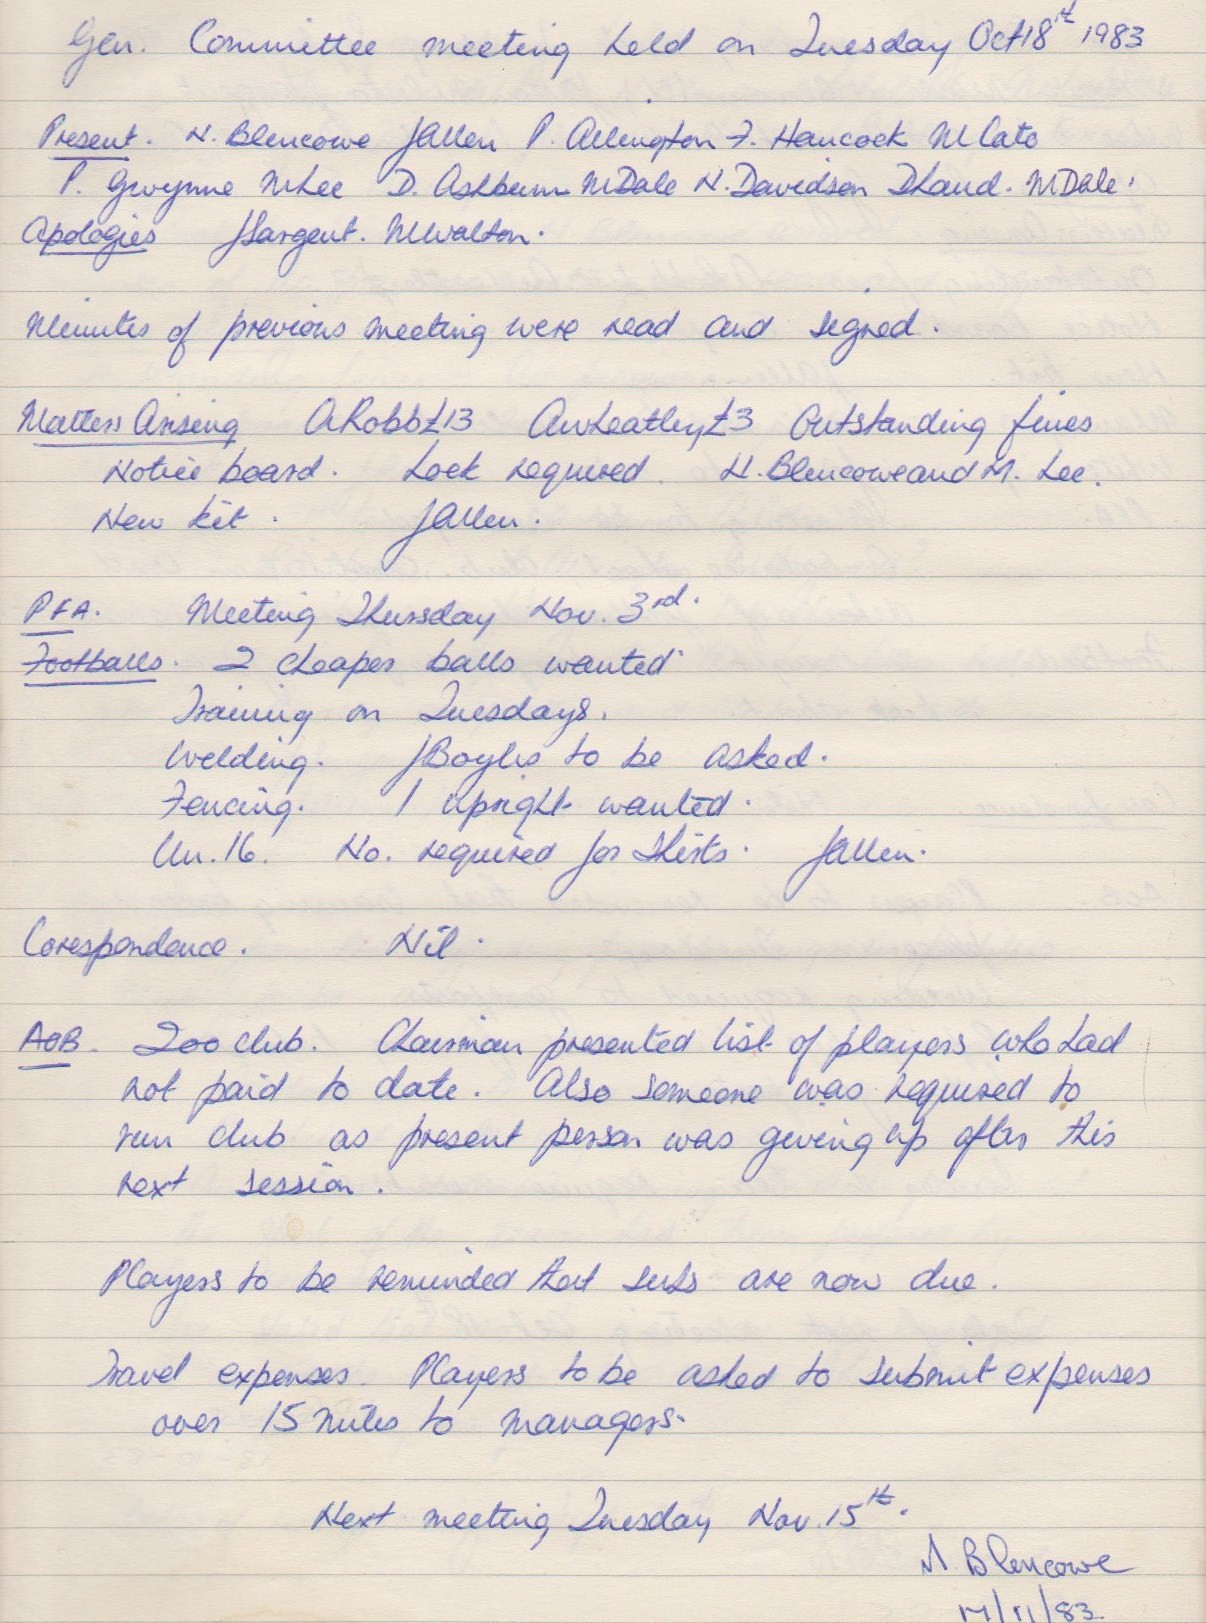 Gen. Committee meeting held on Tuesday Oct 18th 1983
Present. N. Blencowe J Allen P. Allington F. Hancock M Cato
P. Gwynne M Lee D. Ashburn M Dale N. Davidson D Laud. M Dale.
Apologies J Sargent. M Walton.
Minutes of previous meeting were read and signed.
Matters Arising A Robb £13 A Wheatley £3 Outstanding fines
Notice board. Lock required N. Blencowe and M. Lee.
New kit. J Allen.
PFA. Meeting Thursday Nov. 3rd.
Footballs. 2 cheaper balls wanted
Training on Tuesdays.
Welding. J to be asked.
Fencing. 1 upright wanted.
Un. 16. No. required for Shirts. J Allen.
Corespondence. Nil.
AOB. 200 club. Chairman presented list of players who had
not paid to date. Also someone was required to
run club as present person was giving up after this
next session.
Players to be reminded that subs are now due.
Travel expenses. Players to be asked to submit expenses
over 15 miles to managers.
Next meeting Tuesday Nov. 15th.
N. Blencowe
17/11/83